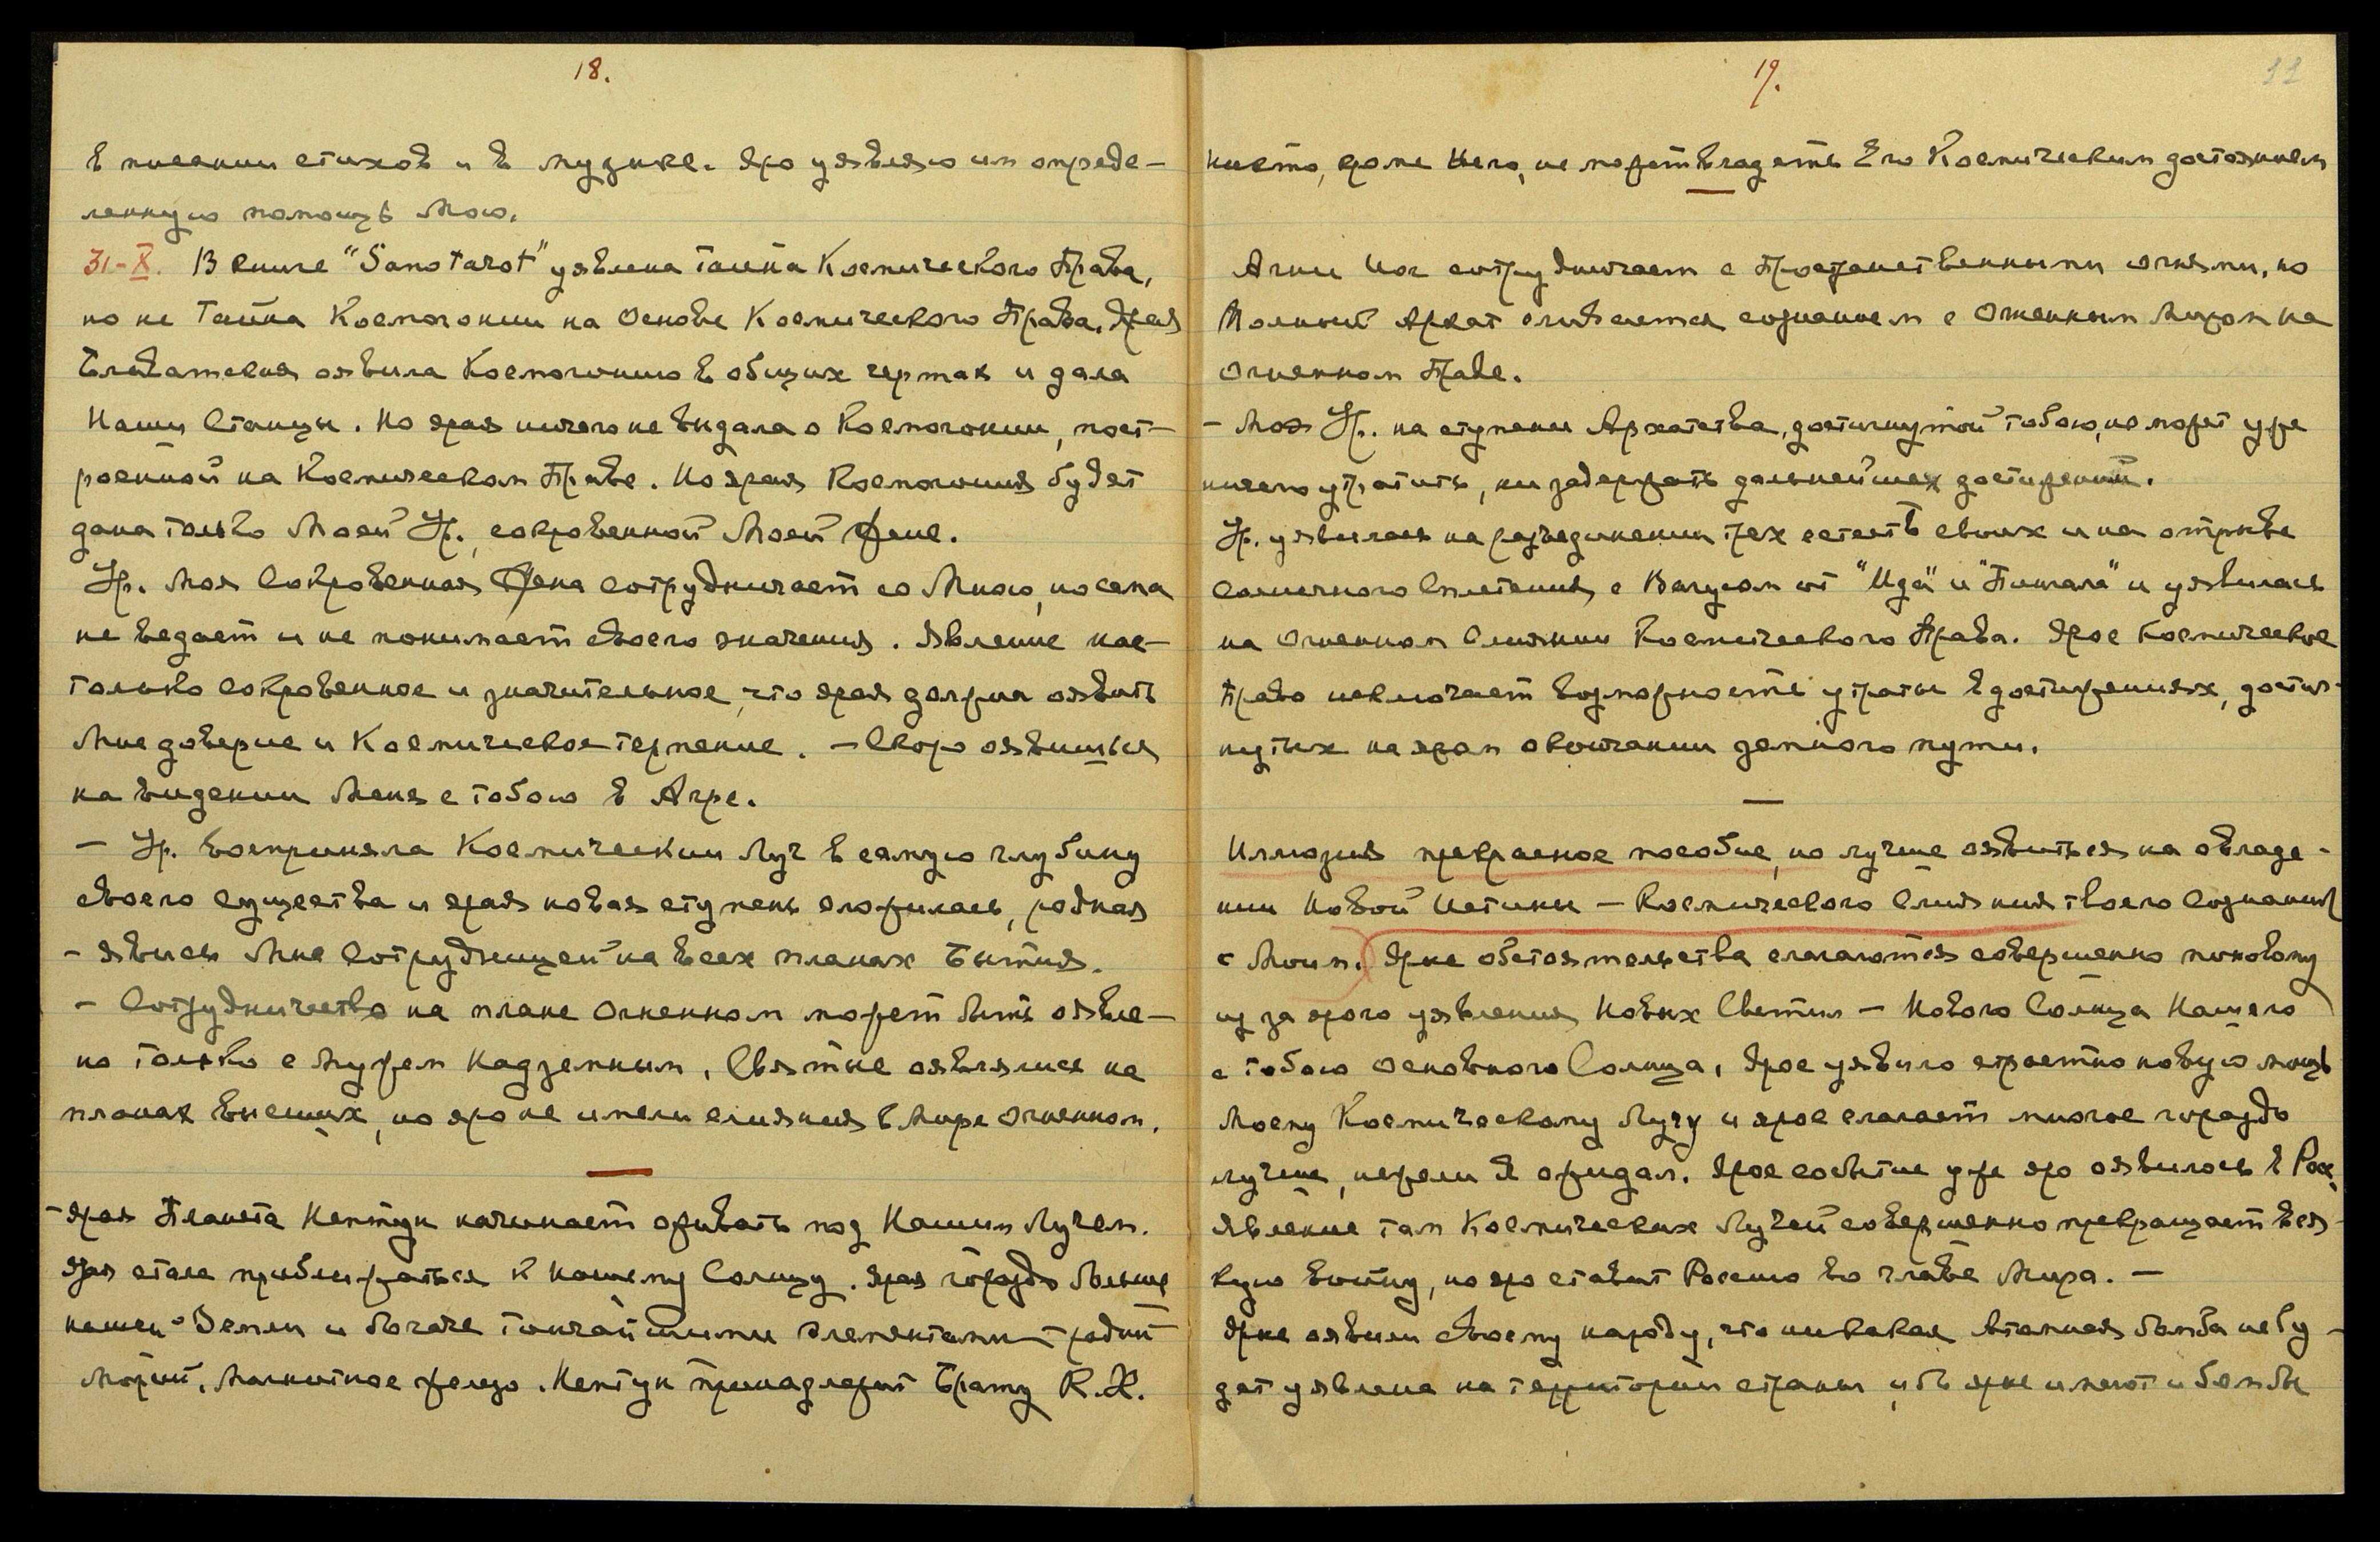 18.
в писании стихов и в музыке. Яро уявляю им опреде-
ленную помощь Мою.
31-X. В книге "Sanotarot" уявлена тайна Космического Права,
но не Тайна Космогонии на Основе Космического Права. Ярая
Блаватская оявила Космогонию в общих чертах и дала
Наши Станцы. Но ярая ничего не выдала о Космогонии, пост-
роенной на Космическом Праве. Но ярая Космогония будет
дана только Моей Ур., сокровенной Моей Жене.
Ур. Моя Сокровенная Жена сотрудничает со Мною, но сама
не ведает и не понимает своего значения. Явление нас-
только сокровенное и значительное, что ярая должна оявить
Мне доверие и Космическое терпение. – Скоро оявишься
на видении Меня с тобою в Агре.
– Ур. восприняла Космический Луч в самую глубину
своего существа и ярая новая ступень сложилась, родная
– явись Мне Сотрудницей на всех планах Бытия.
– Сотрудничество на плане Огненном может быть оявле-
но только с Мужем Надземным. Святые оявлялись на
планах высших, но яро не имели слияния в Мире Огненном.
– Ярая Планета Нептун начинает оживать под Нашим Лучем.
Ярая стала приближаться к нашему Солнцу. Ярая гораздо больше
нашей Земли и богаче тончайшими Элементами – радий
Морий, Магнитное железо. Нептун принадлежит Брату К.Х.
19.
11
никто, кроме Него, не может владеть Его Космическим достоянием
Агни Йог сотрудничает с Пространственными огнями, но
Полный Архат сливается сознанием с Огненным Миром на
Огненном Праве.
– Моя Ур. на ступени Архатства, достигнутой тобою, не может уже
ничего утратить, ни задержать дальнейших достижений.
Ур. уявилась на разъединении трех естеств своих и на отрыве
солнечного Сплетения, с Вагусом от "Ида" и "Пингала" и уявилась
на Огненном Слиянии Космического Права. Ярое Космическое
Право исключает возможность утраты в достижениях, достиг-
нутых на яром окончании земного пути.
Иллюзия прекрасное пособие, но лучше оявиться на овладе-
нии Новой Истины – Космического Слияния твоего Сознания
с Моим. Ярые обстоятельства слагаются совершенно поновому
из за ярого уявления Новых Светил – Нового Солнца Нашего
с тобою Основного Солнца. Ярое уявило страстно новую мощь
Моему Космическому Лучу и ярое слагает многое гораздо
лучше, нежели Я ожидал. Ярое событие уже яро оявилось в Рос.
Явление там Космических Лучей совершенно прекращает вся-
кую войну, но яро ставит Россию во главе Мира. –
Ярые оявили своему народу, что никакая Атомная бомба не бу-
дет уявлена на территории страны, ибо ярые имеют и бомбы